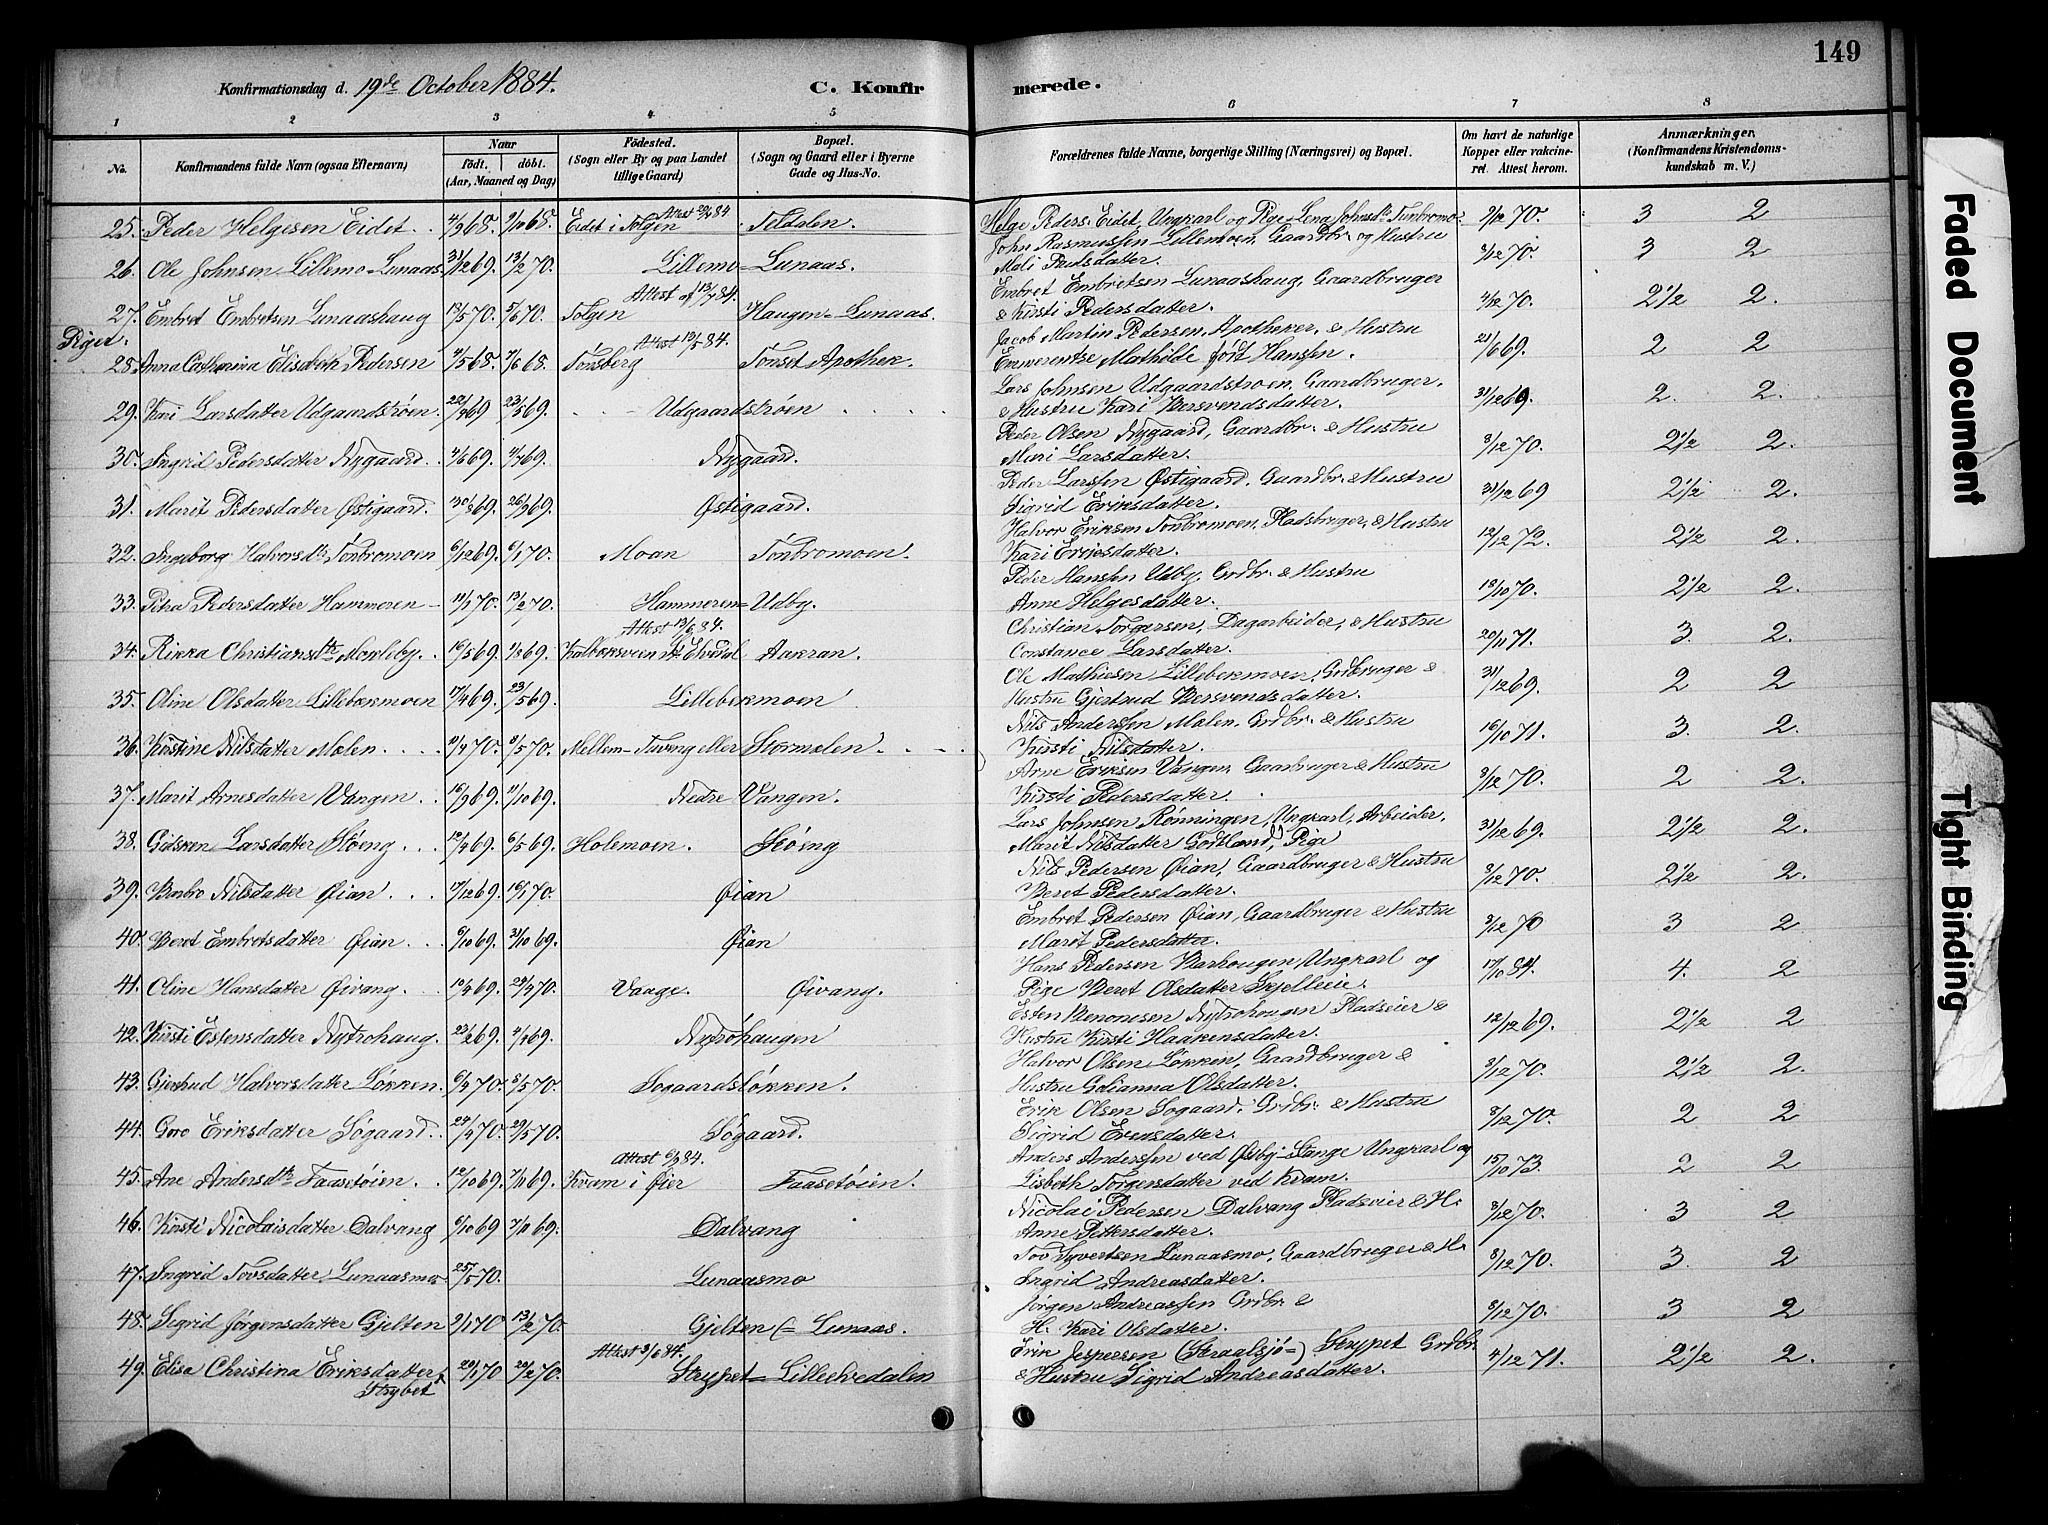 149
Konfirmationsdag d. 19de October 1884. C. Konfirmerede.
1 2 3 4 5 6 7 8
No. Konfirmandens fulde Navn (ogsaa Efternavn) Naar födt. döbt. (Aar, Maaned og Dag) Födested. (Sogn eller By og paa Landet tillige Gaard) Bopæl. (Sogn og Gaard eller i Byerne Gade og Hus-No. Forældrenes fulde Navne, borgerlige Stilling (Næringsvei) og Bopæl. Om havt de naturlige Kopper eller vaccineret. Attest herom. Anmærkninger, (Konfirmandens Kristendomskundskab m. V.)
25. Peder Helgesen Eidet. 4/9 68. 9/10 68. Eidet i Tolgen Attest 84 Teldalen. Helge Peders. Eidet, Ungkarl og Pige Lena Johnsdt. Tonbromo. 2/12 70. 3 2
26. Ole Johnsen Lillemo-Lunaas. 31/12 69. 13/2 70. Lillemo-Lunaas. John Rasmussen Lillemoen, Gaardbr. og Hustru
Mali Paulsdatter. 3/12 70. 3 2
27. Embret Embretsen Lunaashaug 13/5 70. 5/6 70. Tolgen Attest af 13/7 84. Haugen-Lunaas. Embret Embretsen Lunaashaug, Gaardbruger
& Kirsti Pedersdatter. 4/12 70. 2 1/2 2.
Piger.
28. Anna Catharina Elisabeth Pedersen 4/5 68. 7/6 68. Tönsberg Attest 13/5 84. Tönset Apothek. Jacob Martin Pedersen, Apotheker, & Hustru
Emerentze Mathilde födt Hanssen. 21/6 69. 2 2
29. Kari Larsdatter Udgaardströen. 22/4 69 23/5 69. Udgaardströen Lars Johnsen Udgaardstroen. Gaardbruger.
& Hustru Kari Bersvendsdatter. 31/12 69. 2. 2.
30. Ingrid Pedersdatter Nygaard. 4/6 69. 4/7 69. Nygaard. Peder Olsen Nygaard, Gaardbr. & Hustru
Mari Larsdatter. 3/12 70. 2 1/2 2.
31. Marit Pedersdatter Østigaard. 30/8 69. 26/9 69. Østigaard. Peder Larssen Østigaard. Gaardbr. & Hustru
Sigrid Eriksdatter. 31/12 69 2 1/2 2.
32. Ingeborg Halvorsdt. Tönbromoen 6/12 69. 6/1 70. Moan Tönbromoen. Halvor Eriksen Tonbromoen. Pladsbruger, & Hustru
Kari Eriksdatter. 12/12 72. 2 1/2 2.
33. Petra Pedersdatter Hammeren 11/1 70. 13/2 70. Hammeren=Udby. Peder Hanssen Udby. Grdbr. & Hustru
Anne Helgesdatter. 18/10 70. 2 1/2 2.
34. Rikka Christiansdt. 16/5 69. 69. Attest 13/6 84. Aakran. Christian Torgersen, Dagarbeider, & Hustru
Constance Larsdatter. 20/11 71. 3. 2.
35. Oline Olsdatter Lillebekmoen 17/4 69. 23/5 69. Lillebekmoen Ole Mathiesen Lillebekmoen. Grdbruger &
Hustru Gjertrud Bersvendsdatter. 31/12 69. 2 2
36. Kirstine Nilsdatter Mælen. 11/4 70. 8/5 70. Mellem-Tuvang eller Stormælen. Nils Anderssen Mælen. Grdbr. & Hustru
Kirsti Nilsdatter. 16/10 71. 3. 2
37. Marit Arnesdatter Vangen. 16/9 69. 11/10 69. Nedre Vangen. Arne Eriksen Vangen. Gaarbruger & Hustru
Kirsti Pedersdatter. 3/12 70. 2 2.
38. Gidsken Larsdatter Höeng. 12/4 69. 6/5 69. Holemoen. Höeng Lars Johnsen Rönningen, Ungkarl, Arbeider,
Marit Nilsdatter Godtland, Pige 31/12 69. 2 1/2 2.
39. Barbro Nilsdatter Øian. 17/12 69. 16/1 70. Øian Nils Pedersen Øian, Gaardbruger & Hustru
Beret Pedersdatter. 3/12 70. 2 1/2 2.
40. Beret Embretsdatter Øian. 6/10 69. 31/10 69. Øian Embret Pedersen Øian, Gaardbruger & Hustru
Marit Pedersdatter. 3/12 70 3 2
41. Oline Hansdatter Øivang. 10/4 69. 70. Vaage. Øivang. Hans Pedersen Barhougen, Ungkarl og
Pige Beret Olsdatter 17/10 84. 4. 2
42. Kirsti Estensdatter Nytrohaug. 23/2 69. 4/4 69. Nytröhaugen Esten Nytrohougen Pladseier &
Hustru Kirsti Haakensdatter. 12/12 69. 2 1/2 2
43. Gjertrud Halvorsdatter Løkken. 6/4 70. 8/5 70. Sogaardsløkken. Halvor Olsen Løkken, Gaardbruger &
Hustru Golianna Olsdatter. 3/12 70. 2 1/2 2.
44. Goro Eriksdatter Søgaard. 24/4 70. 29/5 70. Søgaard. Erik Olsen Sogaard. Grdbr. & Hustru
Sigrid Evensdatter. 8/12 70. 2 2
45. Ane Andersdt. Faasetöien. 12/10 69. 7/11 69. Kvam i Øier Attest 84. Faasetöien. Anders Anderssen ved Stange Ungkarl og
Lisbeth Torgersdatter ved Kvam. 15/10 73. 2 2
46. Kirsti Nicolaisdatter Dalvang 6/10 69 7/11 69. Dalvang Nicolai Pedersen Dalvang Pladseier & H.
Anne Pettersdatter. 3/12 70. 3 2
47. Ingrid Tovsdatter Lunaasmo. 25/5 70. Lunaasmo Tov Syvertsen Lunaasmo, Gaardbruger & H.
Ingrid Andreasdatter. 8/12 70. 3. 2
48. Sigrid Jørgensdatter Gjelten 9/1 70 13/2 70. Gjelten (=Lunaas. Jørgen Andreassen Grdbr. &
H. Kari Olsdatter. 8/12 70. 3 2
49. Elisa Christina Eriksdatter
Strybet 20/1 70 20/2 70. Attest 3/6 84. Strypet=Lilleelvedalen Erik Jespersen (Straalsjö=) Strypet Grdbr.
& Hustru Sigrid Andreasdatter. 4/12 71. 2 1/2 2.
Faded Document
Tight Binding